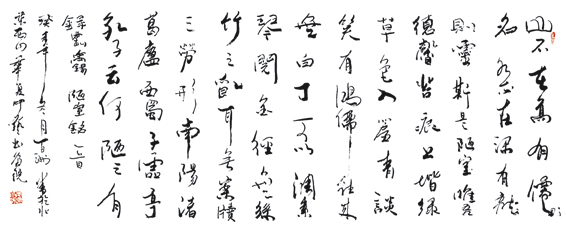 山不在高有僊則
名水不在深有龍
則靈斯是陋室惟吾
德馨苔痕上階緑
草色入簾青談
笑有鴻儒往來
無白丁可以調素
琴閱金經無絲
竹之亂耳無案牘
之勞形南陽諸
葛廬西蜀子雲亭
孔子云何陋之有
録劉禹錫陋室銘一首
年冬月書於北
京西山華夏書院